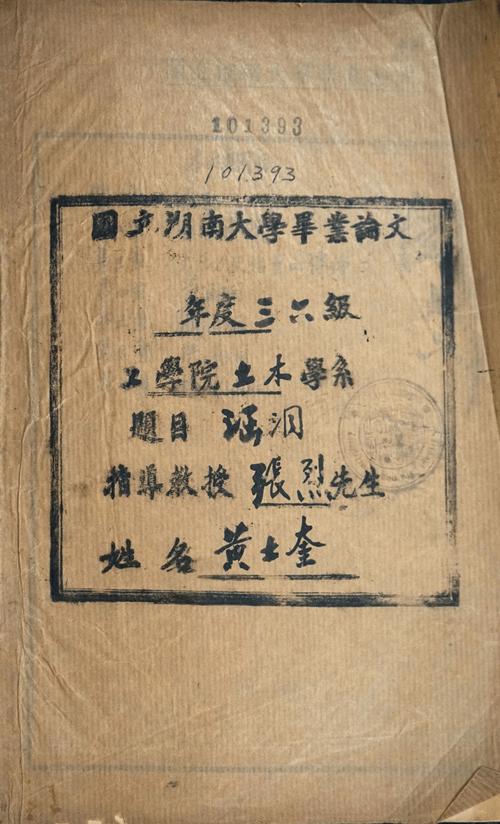 101393
101393
國立湖南大學畢業論文
年度三六級
工學院土木學系
題目 涵洞
指導教授 張烈先生
姓名 黃士奎